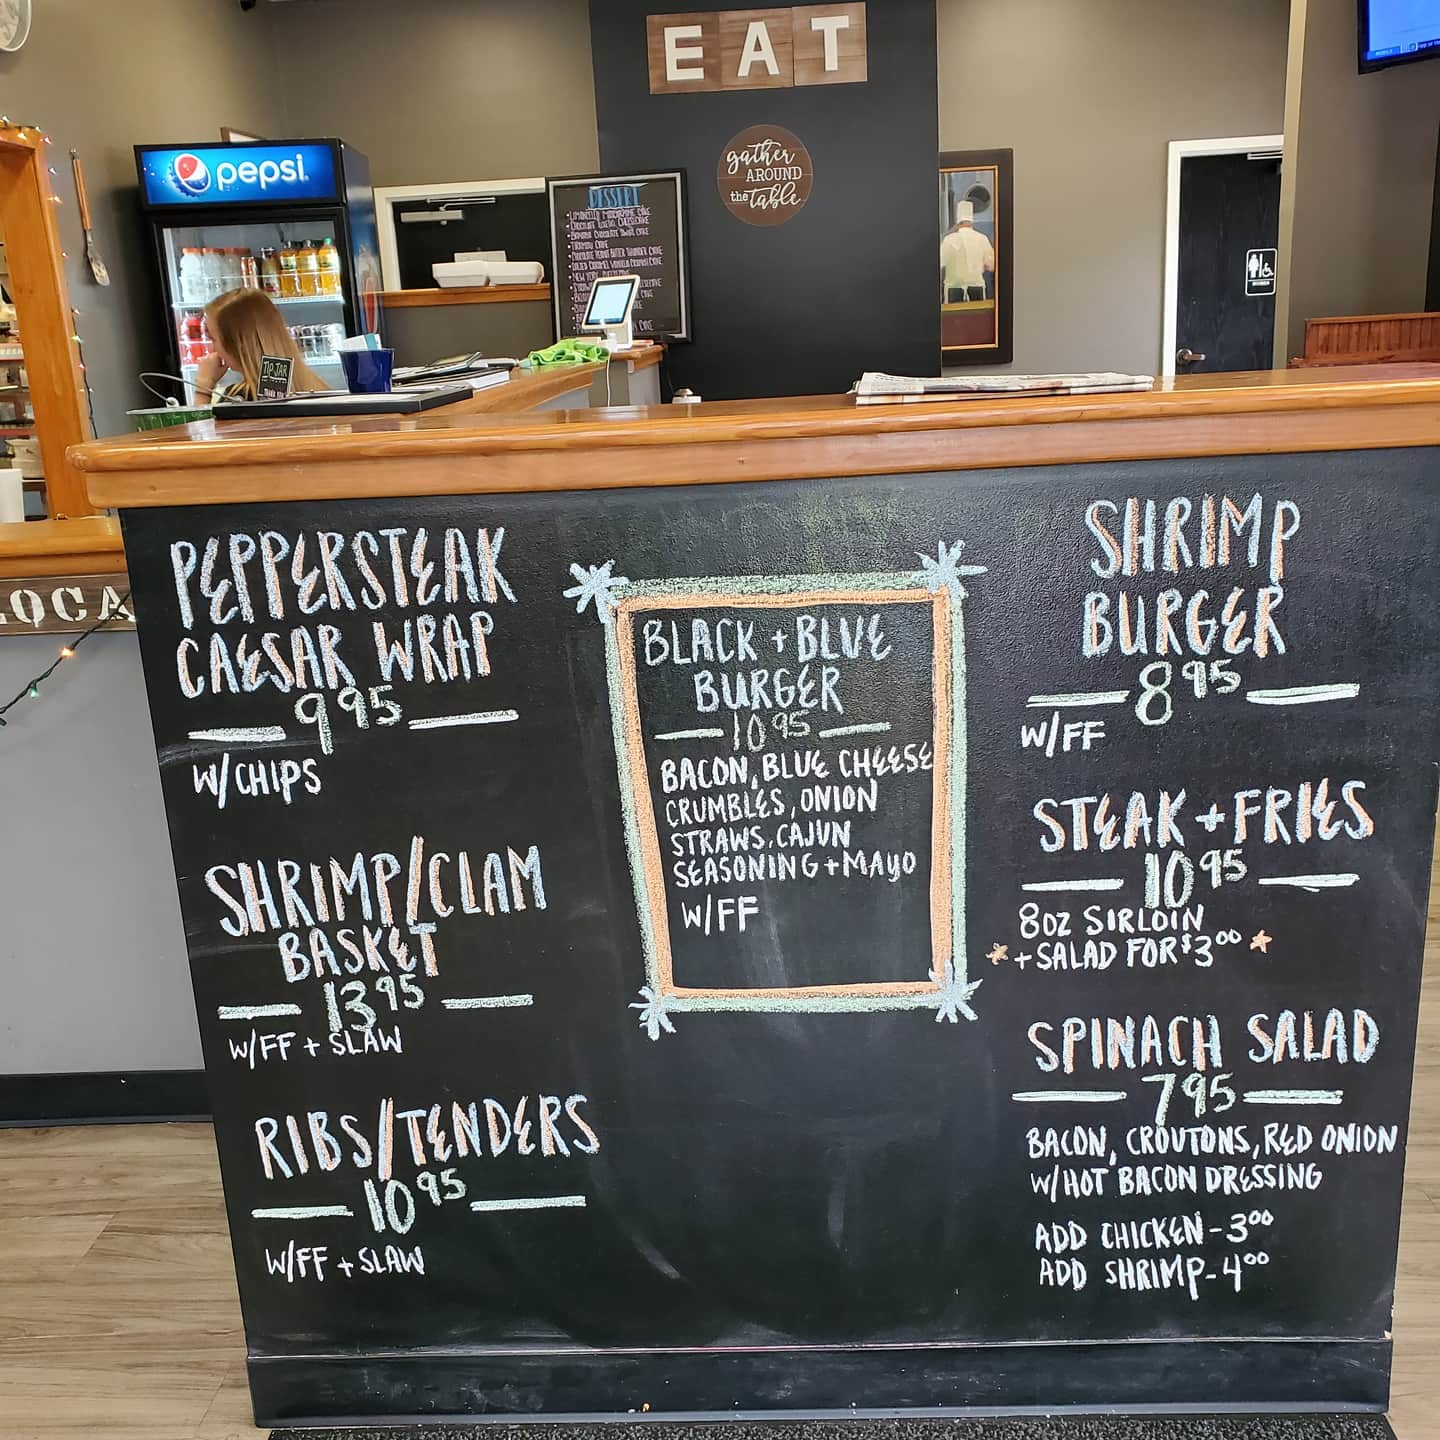 EAT
gather
AROUND
the table
pepsi
DESSERT
TIP JAR
WOMEN
LOCA
PEPPERSTEAK
CAESAR WRAP
9.95
W/CHIPS
SHRIMP/CLAM
BASKET
13.95
W/FF + SLAW
RIBS/TENDERS
10.95
W/FF + SLAW
BLACK + BLUE
BURGER
10.95
BACON, BLUE CHEESE
CRUMBLES, ONION
STRAWS, CAJUN
SEASONING + MAYO
W/FF
SHRIMP
BURGER
8.95
W/FF
STEAK + FRIES
10.95
8OZ SIRLOIN
+ SALAD FOR $3.00
SPINACH SALAD
7.95
BACON, CROUTONS, RED ONION
W/HOT BACON DRESSING
ADD CHICKEN - 3.00
ADD SHRIMP - 4.00